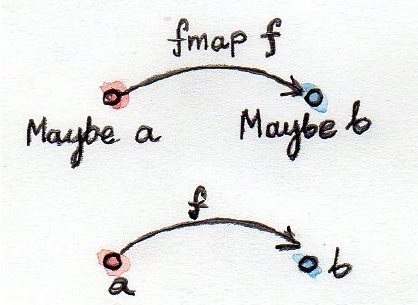 fmap f
Maybe a Maybe b
f
a b